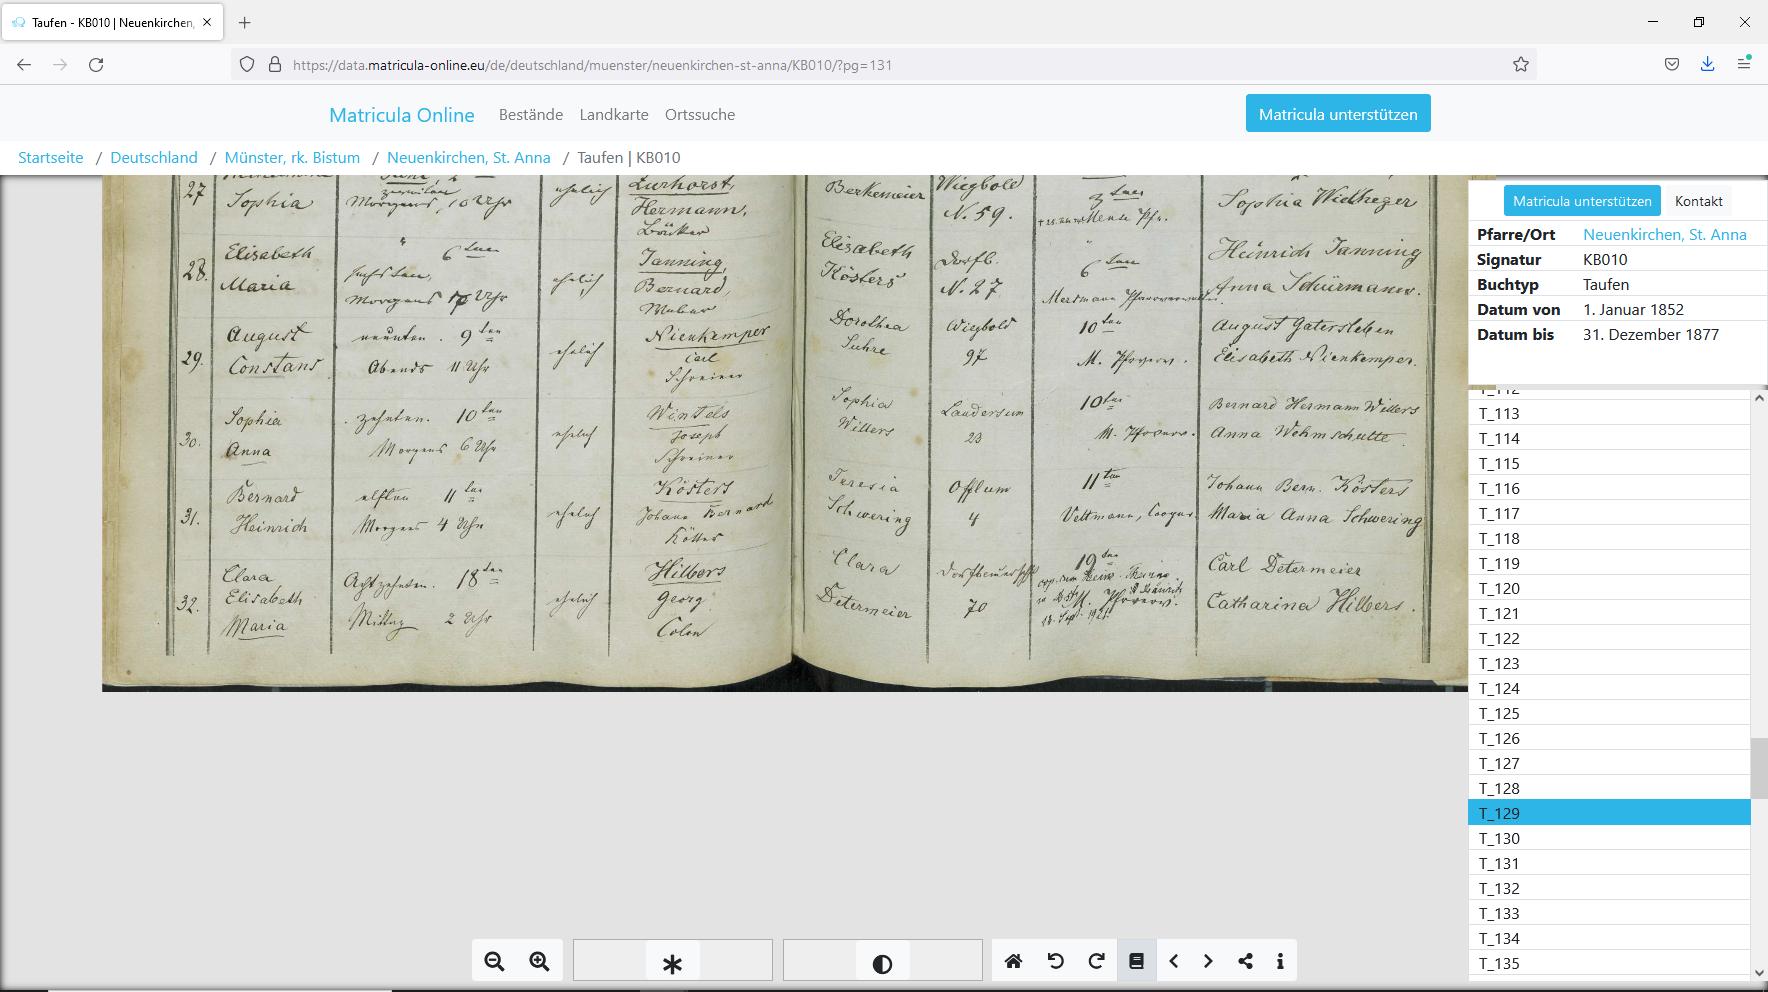 Taufen - KB010 | Neuenkirchen,
https://data.matricula-online.eu/de/deutschland/muenster/neuenkirchen-st-anna/KB010/?pg=131
Matricula Online
Bestände
Landkarte
Ortssuche
Matricula unterstützen
Startseite / Deutschland / Münster, rk. Bistum / Neuenkirchen, St. Anna / Taufen | KB010
27
Sophia
Morgens, 10 Uhr
ehelich
Zurhorst,
Hermann,
Berkemeier
Wiegbold
N. 59.
Sophia Widheger
28.
Elisabeth
Maria
6
Morgens Uhr
ehelich
Tanning,
Bernard,
Elisabeth
Kösters
Dorfb.
N. 27
6
Heinrich Tanning
Anna Schürmann.
29.
August
Constans
neunten. 9ten
Abends 11 Uhr
ehelich
Nienkemper
Carl
Schreiner
Dorothea
Suhre
Wiegbold
97
10ten
M. Pfarrverw.
August Gatersleben
Elisabeth Nienkemper.
30.
Sophia
Anna
zehnten. 10ten
Morgens 6 Uhr
ehelich
Wintels
Joseph
Schreiner
Sophia
Willers
Landersum
23
10ten
M. Pfarrverw.
Bernard Hermann Willers
Anna Wehmschulte
31.
Bernard
Heinrich
elften 11ten
Morgens 4 Uhr
ehelich
Kösters
Johann Bernard
Kötter
Teresia
Schwering
Offlum
4
11ten
Veltmann, Cooper.
Johann Bern. Kösters
Maria Anna Schwering
32.
Clara
Elisabeth
Maria
Achtzehnten. 18ten
Mittag 2 Uhr
ehelich
Hilbers
Georg
Colon
Clara
Determeier
Dorfbauerschft
70
19ten
M. Pfarrverw.
Carl Determeier
Catharina Hilbers.
Matricula unterstützen
Kontakt
Pfarre/Ort Neuenkirchen, St. Anna
Signatur KB010
Buchtyp Taufen
Datum von 1. Januar 1852
Datum bis 31. Dezember 1877
T_112
T_113
T_114
T_115
T_116
T_117
T_118
T_119
T_120
T_121
T_122
T_123
T_124
T_125
T_126
T_127
T_128
T_129
T_130
T_131
T_132
T_133
T_134
T_135